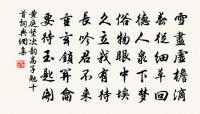 雪盡虛檐滴
春從細草回
德人泉下夢
俗物眼中埃
久立我有待
長吟君不來
重玄鎖關鑰
要待玉匙開
黃庭堅次韵高子勉十
首詞典網集